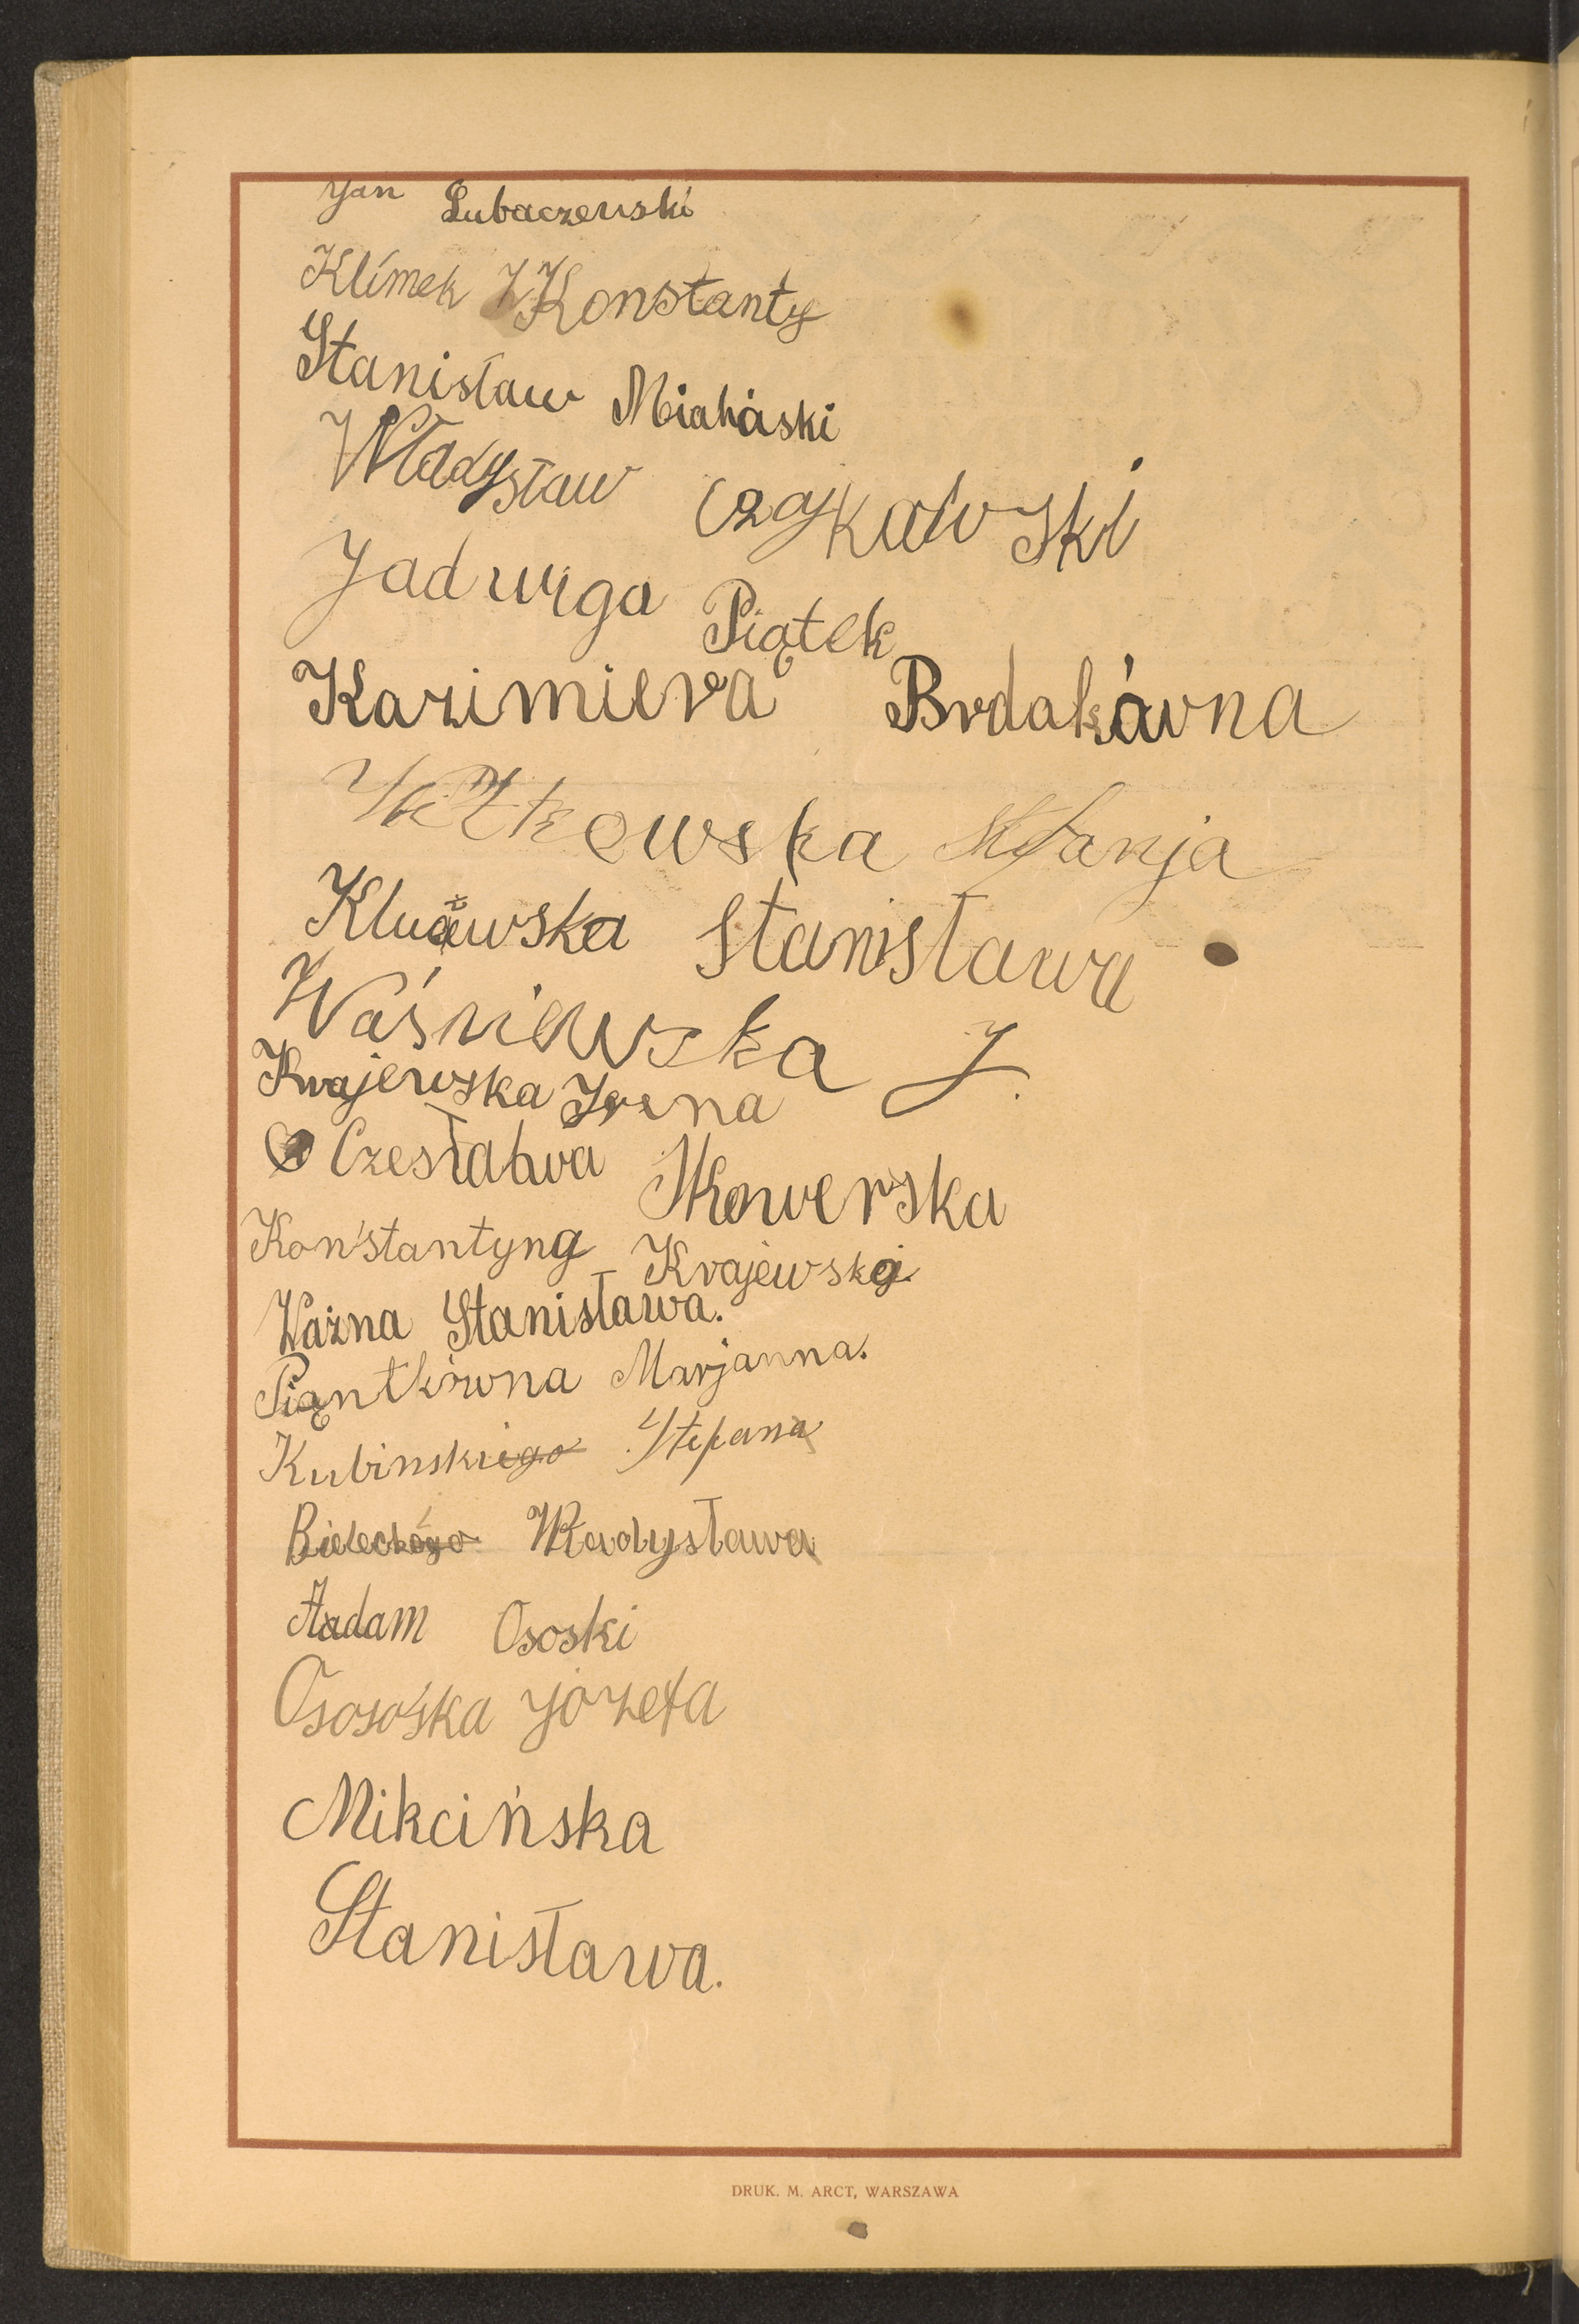 Jan Lubaczewski
Klimek Konstanty
Stanisław Miahaski
Władysław Czajkawski
Jadwiga Piątek
Kazimiera Brdakówna
Witkowska Stefanja
Stanisława
Waśniewska J.
Krajewska Irena
Czesława Skowerska
Konstantyna Krajewska
Ważna Stanisława.
Piąntkówna Marjanna.
Kubinskiego Stefana
Bieleckiego Władysława
Aadam Ososki
Ososośka Józefa
Mikcińska
Stanisława.
DRUK. M. ARCT, WARSZAWA